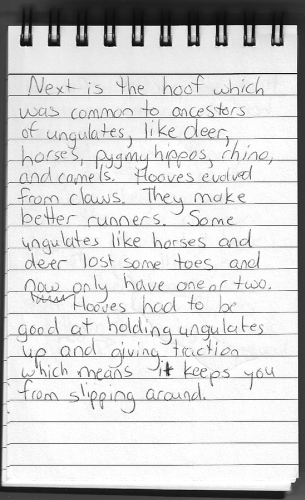 Next is the hoof which
was common to ancestors
of ungulates, like deer,
horses, pygmy hippos, rhino,
and camels. Hooves evolved
from claws. They make
better runners. Some
ungulates like horses and
deer lost some toes and
now only have one or two.
Hooves had to be
good at holding ungulates
up and giving traction
which means it keeps you
from slipping around.